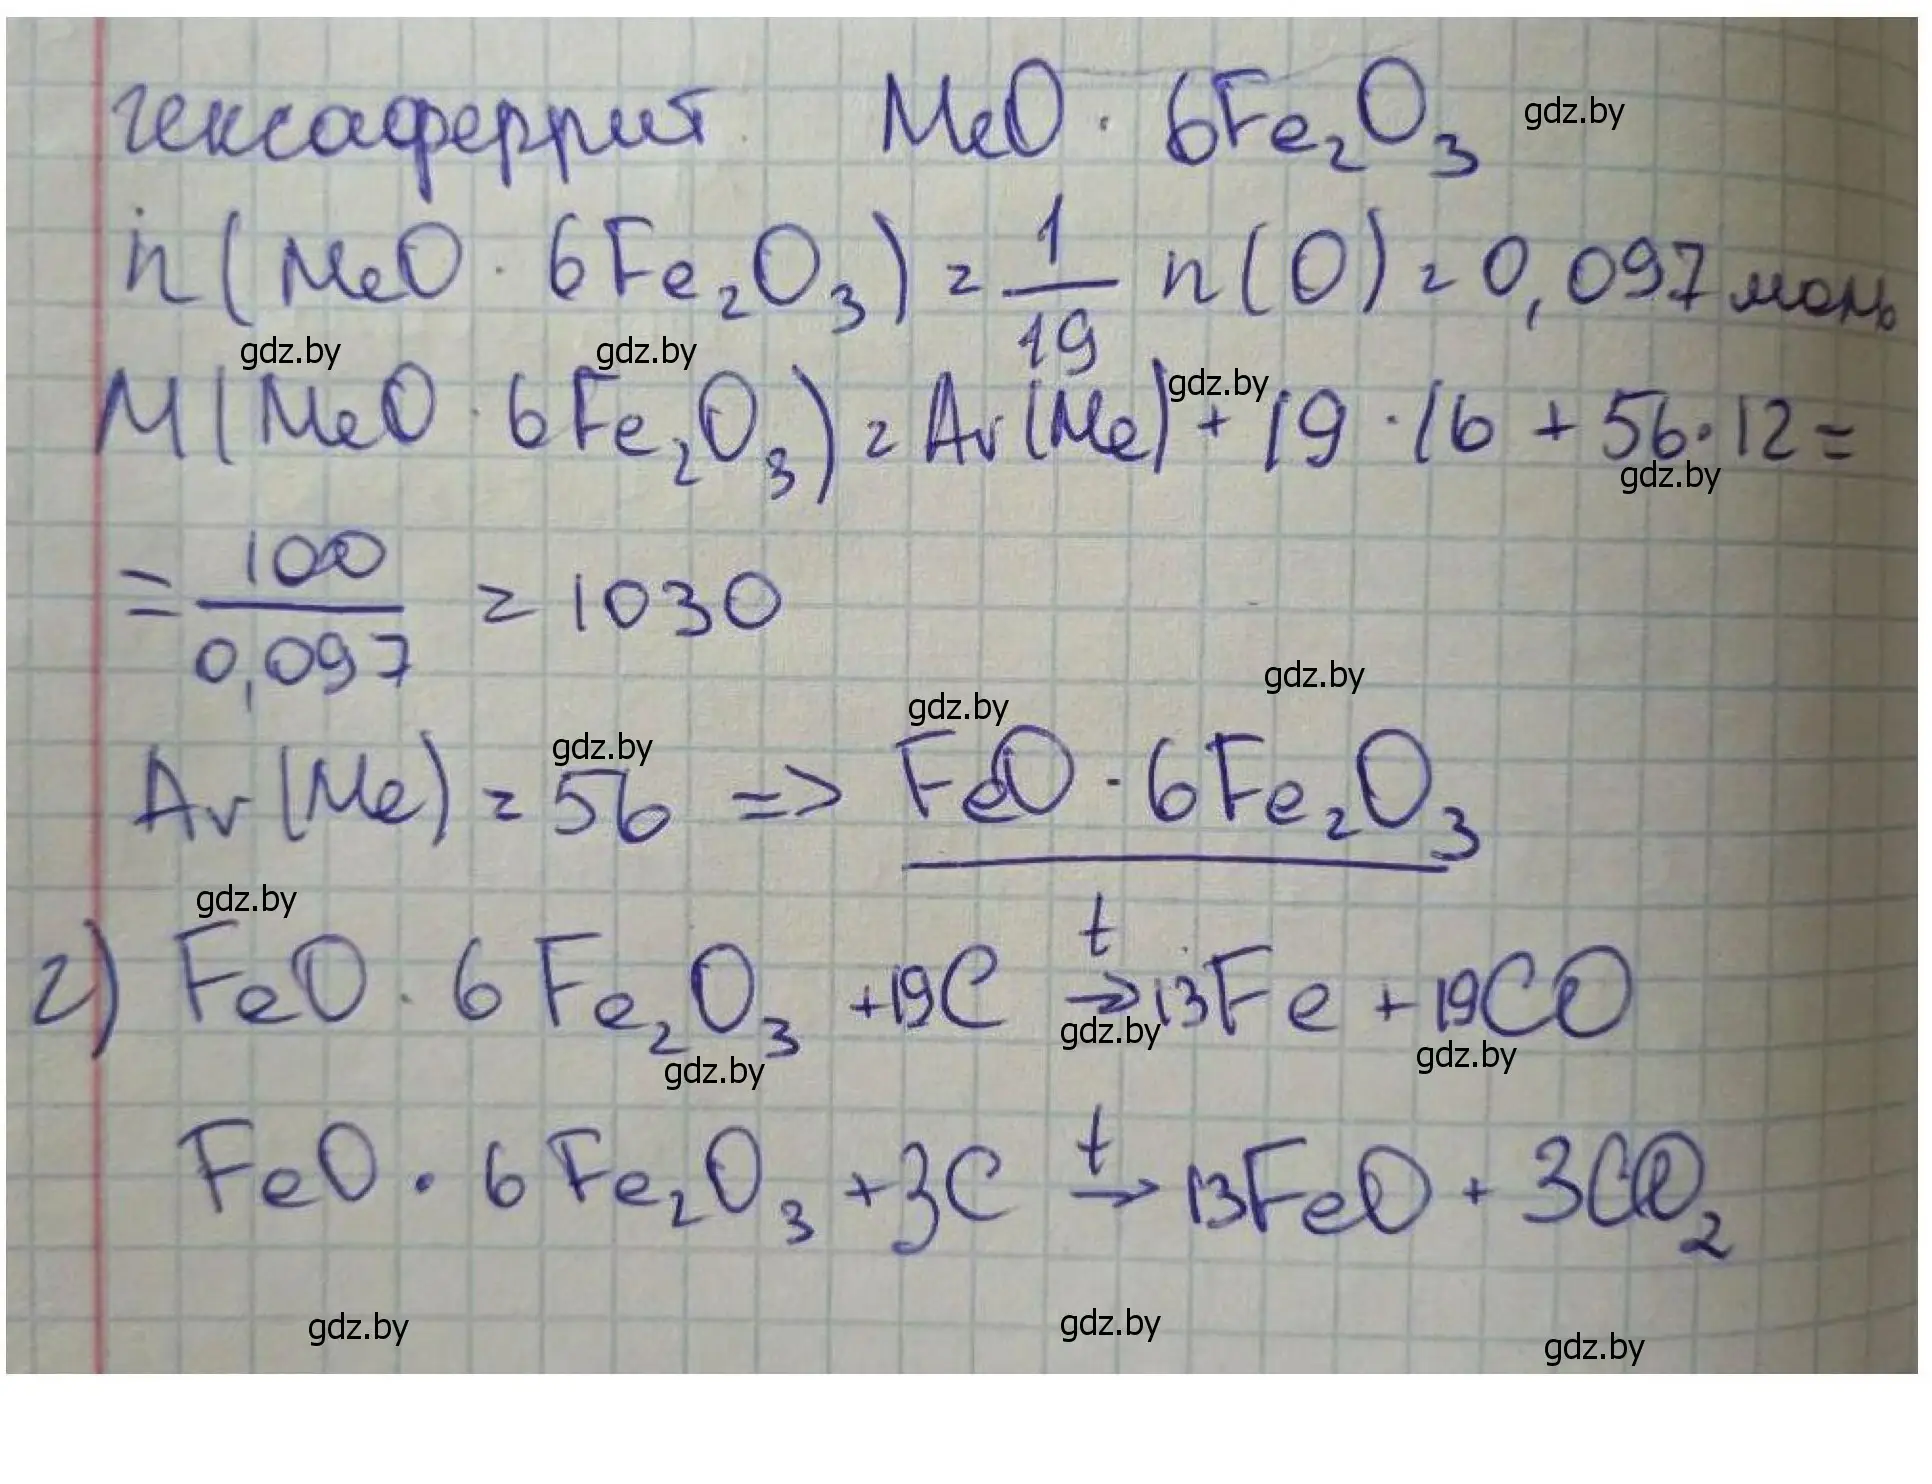 гексаферрит MeO · 6Fe₂O₃ gdz.by
n(MeO · 6Fe₂O₃) = 1/19 n(O) = 0,097 моль
gdz.by gdz.by gdz.by
M(MeO · 6Fe₂O₃) = Ar(Me) + 19 · 16 + 56 · 12 =
gdz.by
= 100/0,097 = 1030
gdz.by
gdz.by
gdz.by
Ar(Me) = 56 => FeO · 6Fe₂O₃
gdz.by
г) FeO · 6Fe₂O₃ + 19C t→ 13Fe + 19CO
gdz.by gdz.by gdz.by
FeO · 6Fe₂O₃ + 3C t→ 13FeO + 3CO₂
gdz.by gdz.by gdz.by